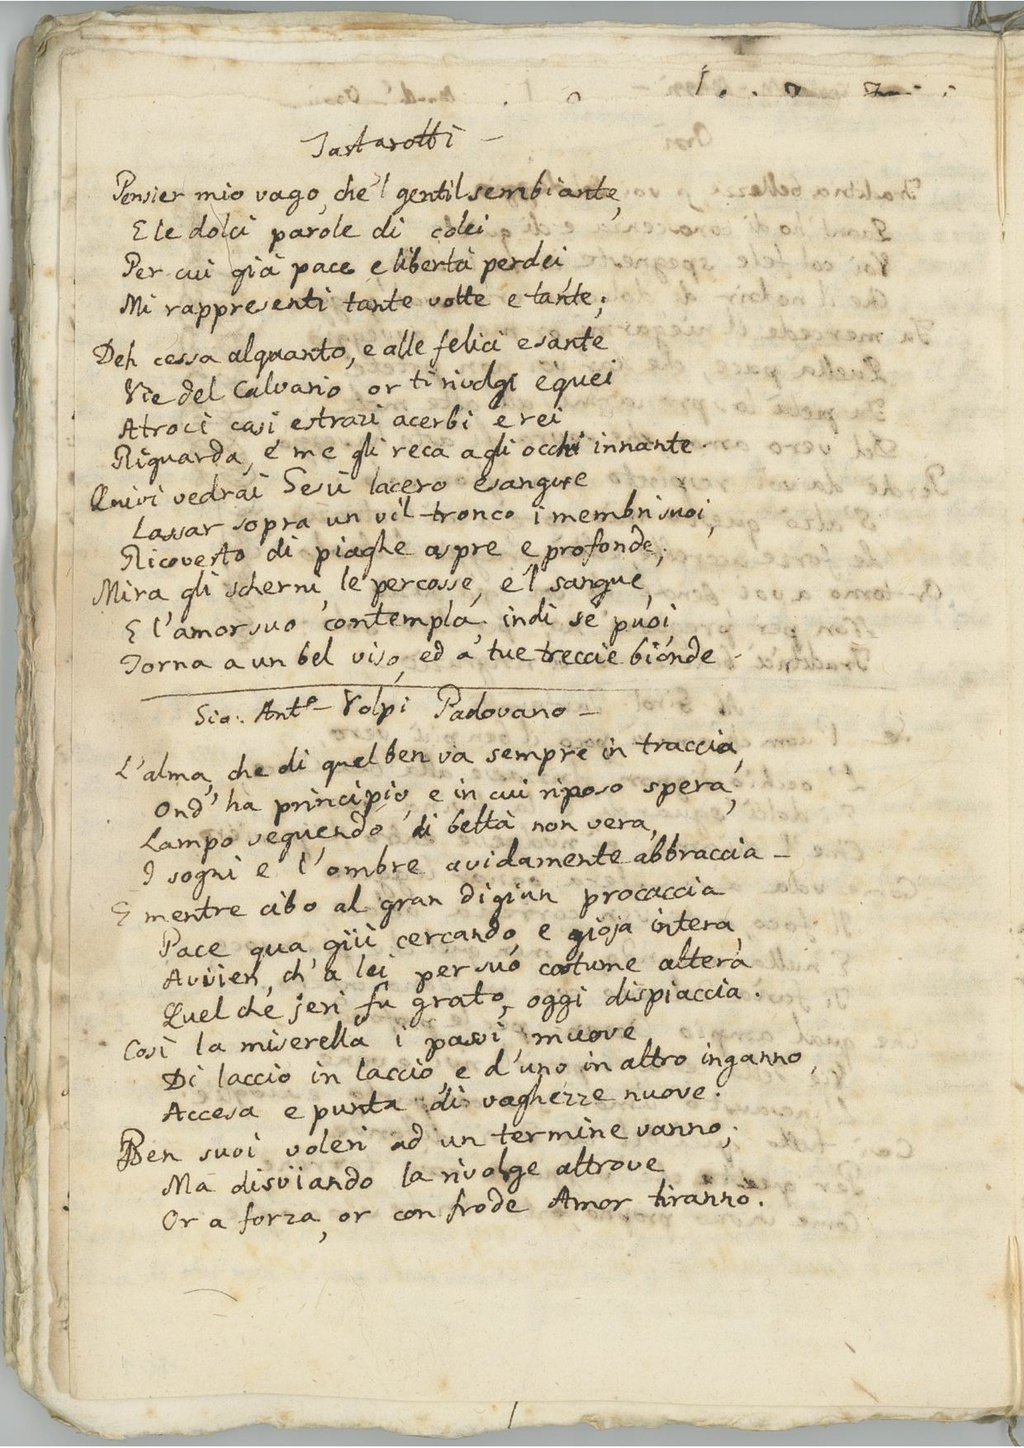 Tartarotti –
Pensier mio vago, che'l gentil sembiante,
E le dolci parole di colei
Per cui già pace e libertà perdei
Mi rappresenti tante volte e tante;
Deh cessa alquanto, e alle felici e sante
Vie del Calvario or ti rivolgi e quei
Atroci casi e strazi acerbi e rei
Riguarda, e me gli reca agli occhi innante.
Quivi vedrai Gesù lacero esangue
Lassar sopra un vil tronco i membri suoi,
Ricoverto di piaghe aspre e profonde;
Mira gli scherni, le percosse, e'l sangue,
E l'amor suo contempla, indi se puoi
Torna a un bel viso, ed a tue treccie bionde
Gio: Ant.º Volpi Padovano –
L'alma, che di quel ben va sempre in traccia,
Ond' ha principio, e in cui riposo spera,
Lampo seguendo di beltà non vera,
I sogni e l'ombre avidamente abbraccia –
E mentre cibo al gran digiun procaccia
Pace qua giù cercando, e gioja intera,
Avvien, ch'a lei per suo costume altera
Quel che jeri fu grato, oggi dispiaccia.
Così la miserella i passi muove
Di laccio in laccio, e d'uno in altro inganno,
Accesa e punta di vaghezze nuove.
Ben suoi voleri ad un termine vanno;
Ma disviando la rivolge altrove
Or a forza, or con frode Amor tiranno.